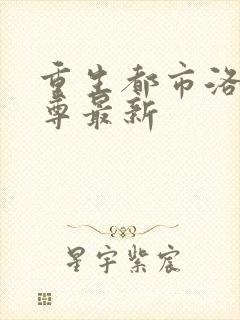 重生都市洛
尊最新
星宇紫宸